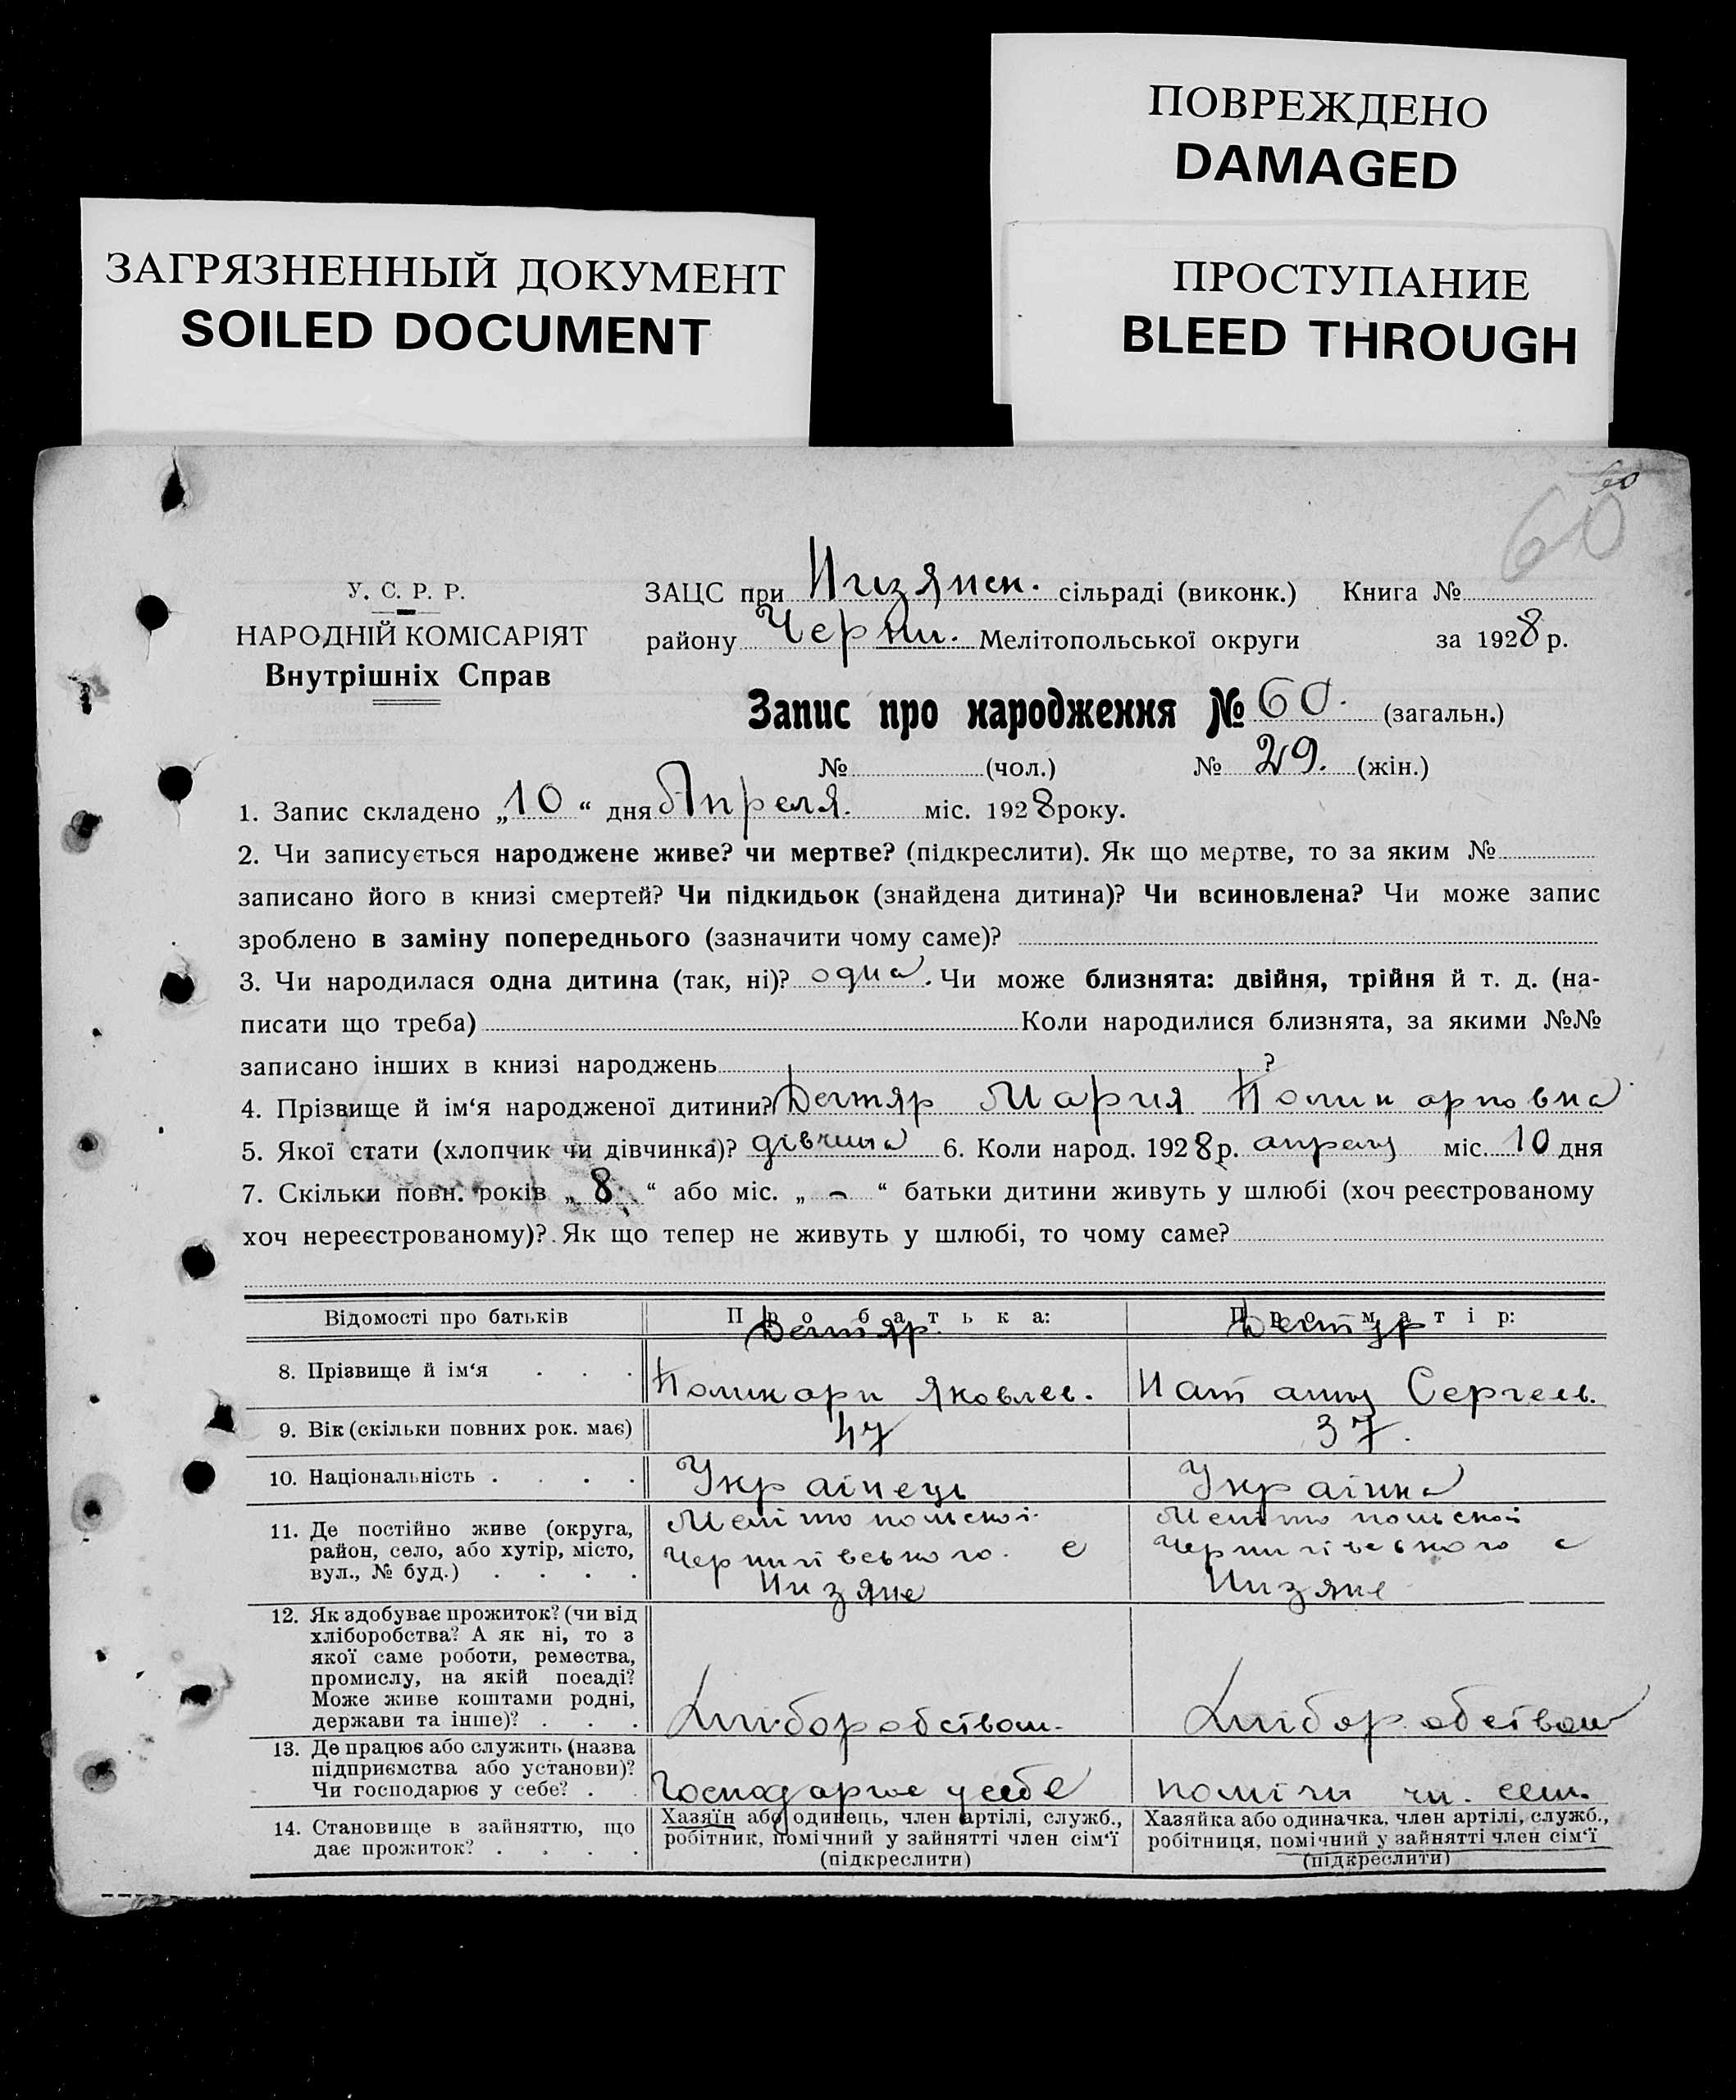 ПОВРЕЖДЕНО
DAMAGED
ЗАГРЯЗНЕННЫЙ ДОКУМЕНТ
SOILED DOCUMENT
ПРОСТУПАНИЕ
BLEED THROUGH
60
60
У. С. Р. Р.
НАРОДНІЙ КОМІСАРІЯТ
Внутрішніх Справ
ЗАЦС при Низянск. сільраді (виконк.) Книга №
району Черни. Мелітопольської округи за 1928 р.
Запис про народження № 60. (загальн.)
№ (чол.) № 29. (жін.)
1. Запис складено „10“ дня Апреля. міс. 1928 року.
2. Чи записується народжене живе? чи мертве? (підкреслити). Як що мертве, то за яким №
записано його в книзі смертей? Чи підкидьок (знайдена дитина)? Чи всиновлена? Чи може запис
зроблено в заміну попереднього (зазначити чому саме)?
3. Чи народилася одна дитина (так, ні)? одна. Чи може близнята: двійня, трійня й т. д. (на-
писати що треба) Коли народилися близнята, за якими №№
записано інших в книзі народжень ?
4. Прізвище й ім‘я народженої дитини? Дегтяр Мария Поликарповна
5. Якої стати (хлопчик чи дівчинка)? дівчина 6. Коли народ. 1928 р. апрель міс. 10 дня
7. Скільки повн. років „8“ або міс. „-“ батьки дитини живуть у шлюбі (хоч реєстрованому
хоч нереєстрованому)? Як що тепер не живуть у шлюбі, то чому саме?
Відомості про батьків Про батька: Про матір:
8. Прізвище й ім‘я . . . Дегтяр Поликарп Яковлев. Дегтяр Наталия Сергеев.
9. Вік (скільки повних рок. має) 47 37.
10. Національність . . . . Українець Українка
11. Де постійно живе (округа,
район, село, або хутір, місто,
вул., № буд.) . . . .
Мелітопольской
Чернигівського. с
Низяне
Мелітопольской
Чернигівського с
Низяне
12. Як здобуває прожиток? (чи від
хліборобства? А як ні, то з
якої саме роботи, ремества,
промислу, на якій посаді?
Може живе коштами родні,
держави та інше)? . . .
Хліборобством. Хліборобством
13. Де працює або служить (назва
підприємства або установи)?
Чи господарює у себе? . .
Господарює у себе помічн. чл. сем.
14. Становище в зайняттю, що
дає прожиток? . . . .
Хазяїн або одинець, член артілі, служб.,
робітник, помічний у зайнятті член сім‘ї
(підкреслити)
Хазяйка або одиначка, член артілі, служб.,
робітниця, помічний у зайнятті член сім‘ї
(підкреслити)